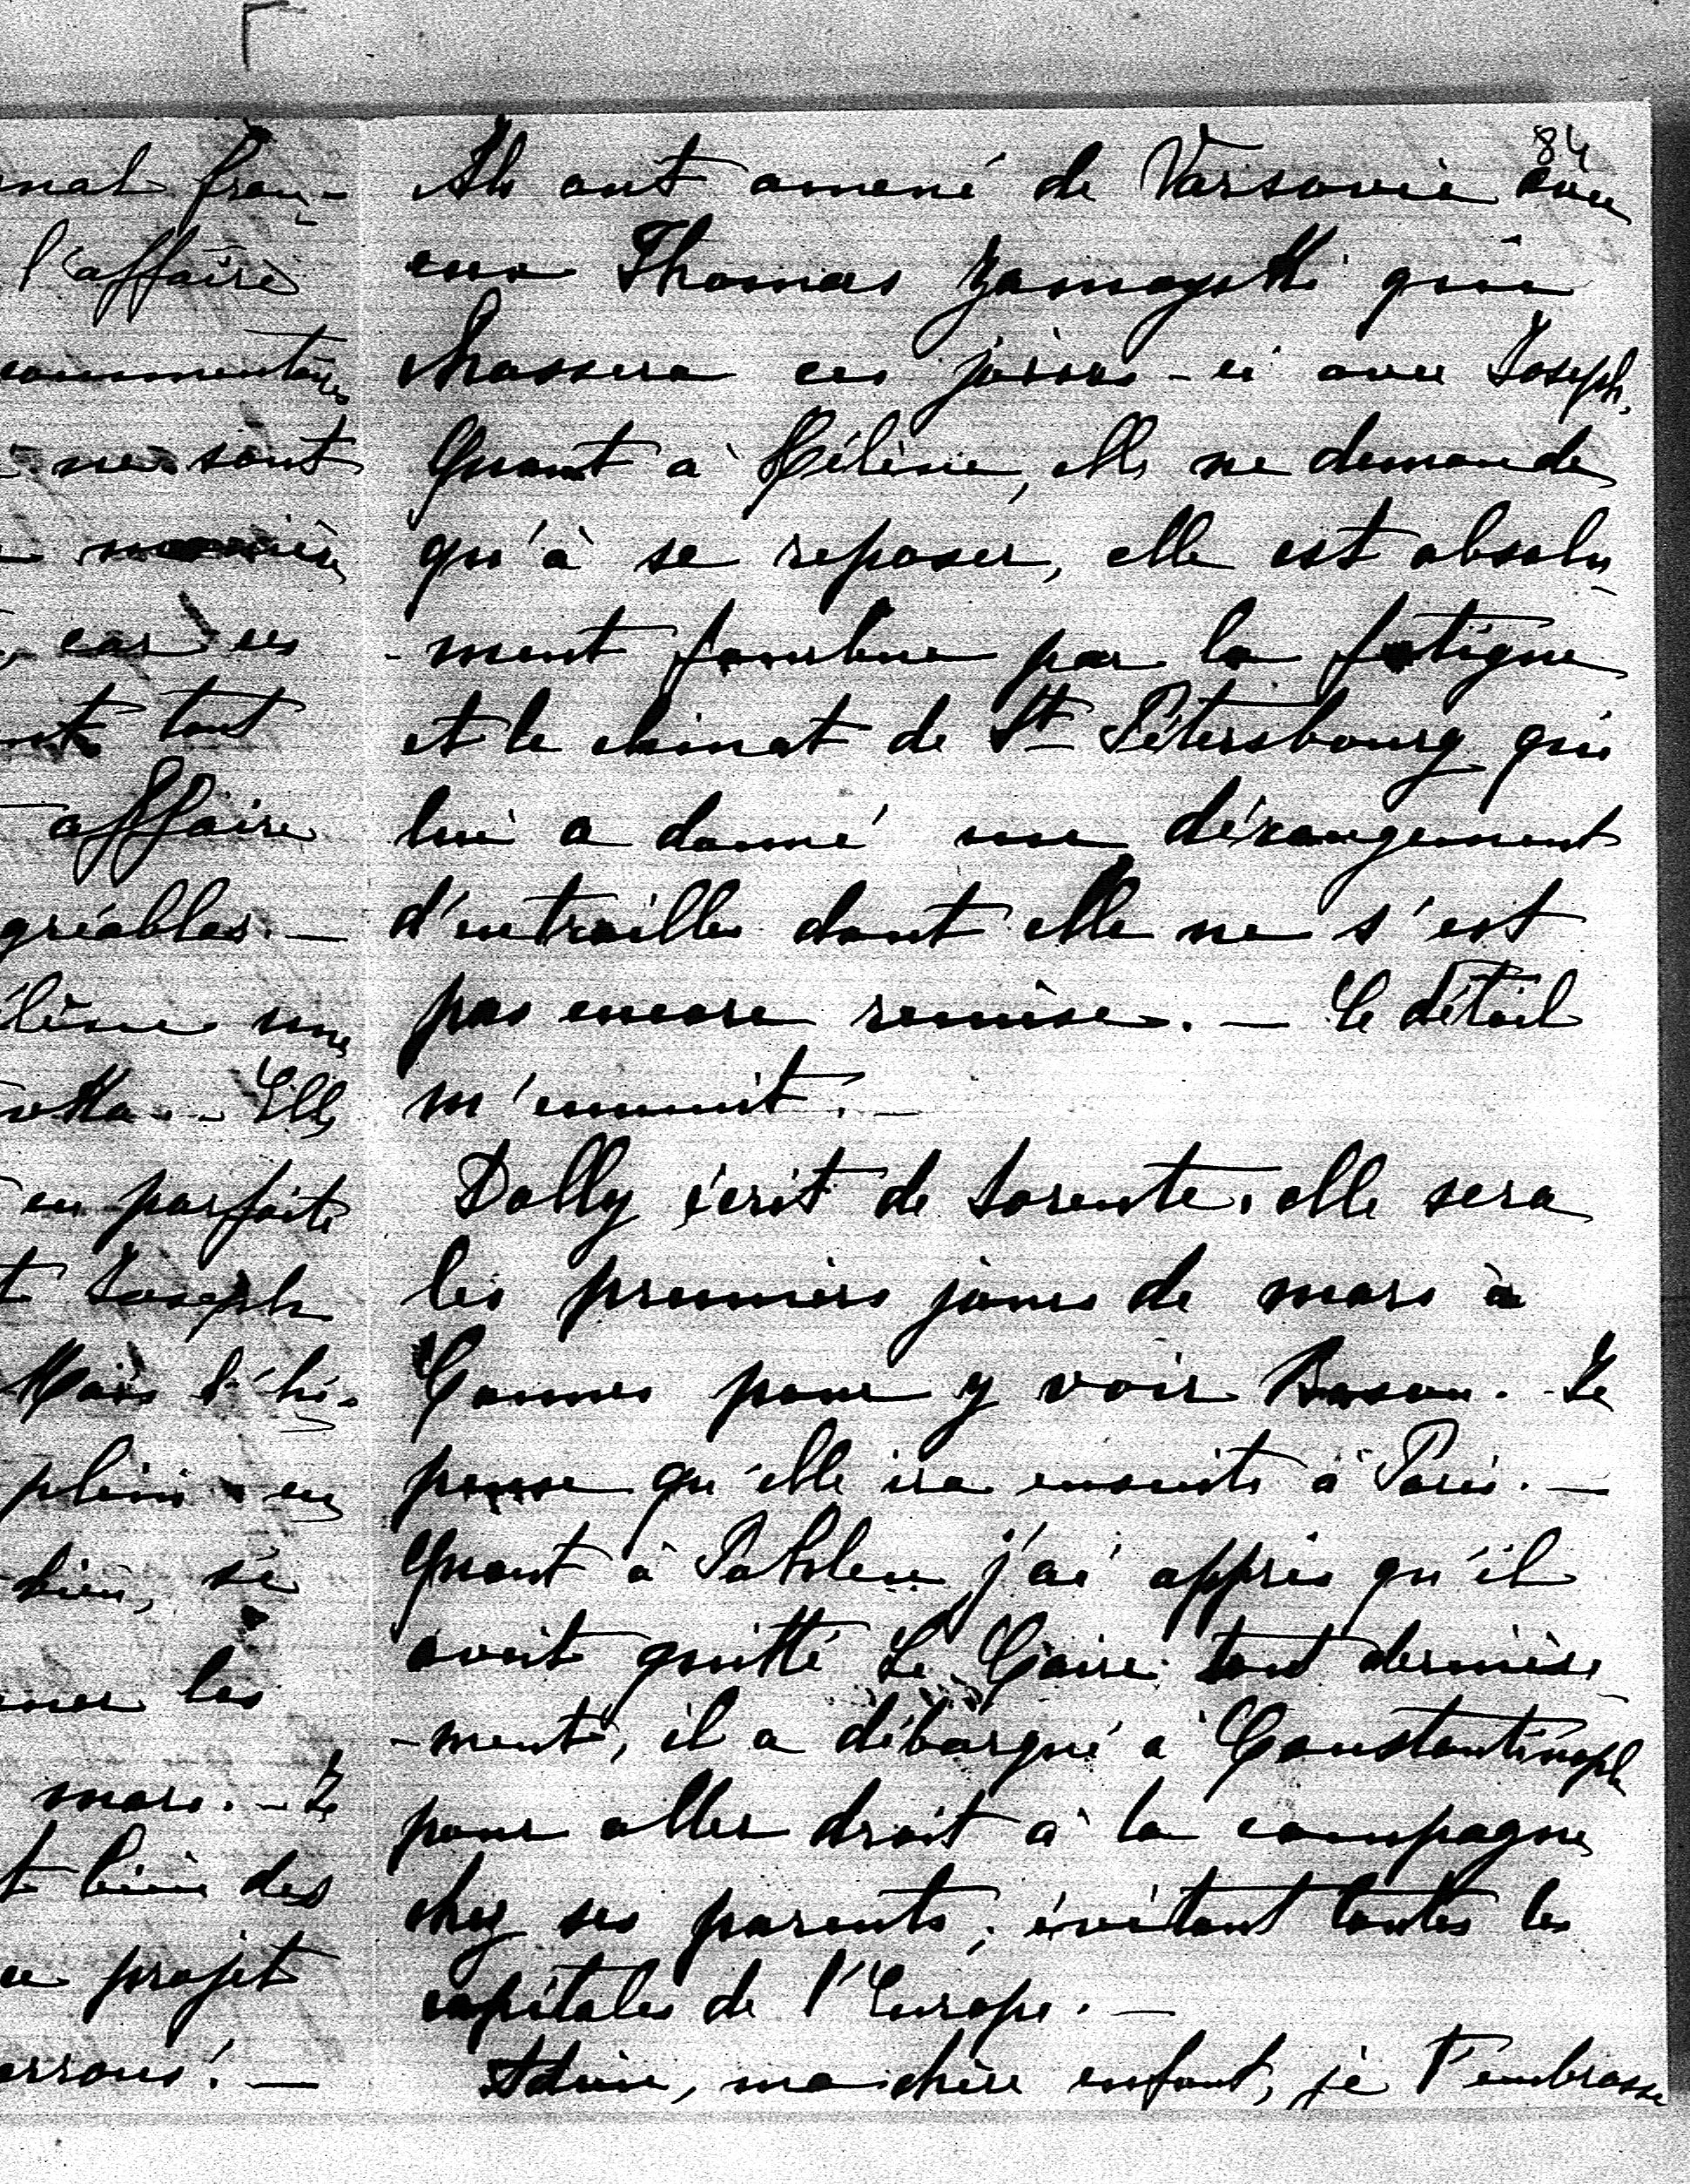 nal fran-
l'affaire
commentaires
ne sont
manière
car ces
tout
affaire
gréables. —
lène une
Elle
en parfaite
Joseph
Mais l'hi-
plein en
bien, se
les
mars. — Je
bien des
projet
errons! —
84
Ils ont amené de Varsovie avec
eux Thomas Zamoyski qui
chassera ces jours-ci avec Joseph.
Quant à Hélène, elle ne demande
qu'à se reposer, elle est absolu-
-ment fourbue par la fatigue
et le climat de St Pétersbourg qui
lui a donné un dérangement
d'entrailles dont elle ne s'est
pas encore remise. — Ce détail
m'ennuit. —
Dolly écrit de Sorente. elle sera
les premiers jours de mars à
Cannes pour y voir Boson. Je
pense qu'elle ira ensuite à Paris. —
Quant à j'ai appris qu'il
avait quitté Le Caire tout dernière-
-ment, il a débarqué à Constantinople
pour aller droit à la campagne
chez ses parents, évitant toutes les
capitales de l'Europe. —
Adieu, ma chère enfant, je t'embrasse